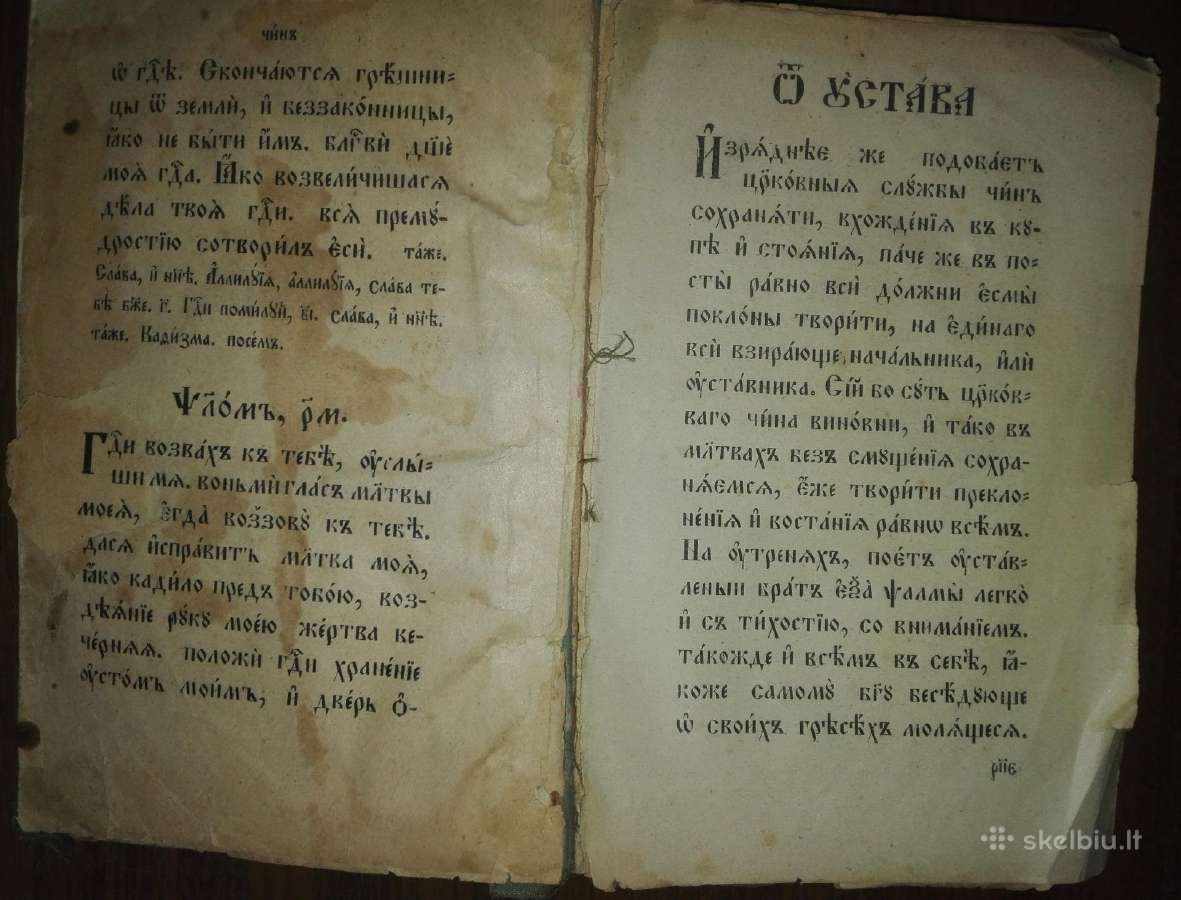 чи́нъ
ѡ҆ гдⷭ҇ѣ. Сконча́ются грѣ́шни-
цы ѿ землѝ, и҆ беззако́нницы,
ꙗ҆́ко не бы́ти и҆̀мъ. блгⷭ҇вѝ дш҃ѐ
моѧ̀ гдⷭ҇а. Ꙗ҆́ко возвели́чишася
дѣ́ла твоѧ̀ гдⷭ҇и. всѧ̀ премꙋ́-
дростїю сотвори́лъ є҆сѝ. та́же.
Сла́ва, и҆ нн҃ѣ. А҆ллилꙋ́їѧ, а҆ллилꙋ́їѧ, сла́ва те-
бѣ̀ бж҃е. г҃. Гдⷭ҇и поми́лꙋй, в҃і. сла́ва, и҆ нн҃ѣ.
та́же. Каѳи́зма. посе́мъ.
Ѱло́мъ, р҃м.
Гдⷭ҇и возва́хъ къ тебѣ̀, оу҆слы́-
ши мѧ. воньмѝ гла́съ мл҃твы
моеѧ̀, є҆гда̀ воззовꙋ̀ къ тебѣ̀.
дасѧ и҆спра́витъ мл҃тва моѧ̀,
ꙗ҆́ко кади́ло предъ тобо́ю, воз-
дѣѧ́нїе рꙋ́кꙋ мое́ю же́ртва ве-
че́рняѧ. положѝ гдⷭ҇и хране́нїе
оу҆сто́мъ мои́мъ, и҆ две́рь ѻ҆-
Ѿ ᲂу҆ста́ва
И҆зрѧ́днѣе же подоба́етъ
цр҃ко́вныѧ слꙋ́жбы чи́нъ
сохранѧ́ти, вхожде́нїѧ въ кꙋ-
пѣ и҆ стоѧ́нїѧ, па́че же въ по-
сты̀ ра́вно всѝ до́лжни є҆смы̀
покло́ны твори́ти, на є҆ди́наго
всѝ взира́юще нача́льника, и҆лѝ
оу҆ста́вника. Сі́и бо сꙋ́ть цр҃ко́в-
наго чи́на вино́вни, и҆ та́ко въ
мл҃твахъ безъ смꙋще́нїѧ сохра-
нѧ́емсѧ, є҆́же твори́ти прекло-
не́нїѧ и҆ воста́нїѧ ра́внѡ всѣ́мъ.
На оу҆́треняхъ, пое́тъ оу҆ста́в-
леныи бра́тъ є҆ѯ҃а̀ ѱалмы̀ легко̀
и҆ съ ти́хостїю, со внима́нїемъ.
та́кожде и҆ всѣ́мъ въ себѣ̀, ꙗ҆́-
коже самомꙋ̀ бг҃ꙋ бесѣ́дꙋюще
ѡ҆ свои́хъ грѣсѣ́хъ молѧ́щеся.
рп҃е
skelbiu.lt